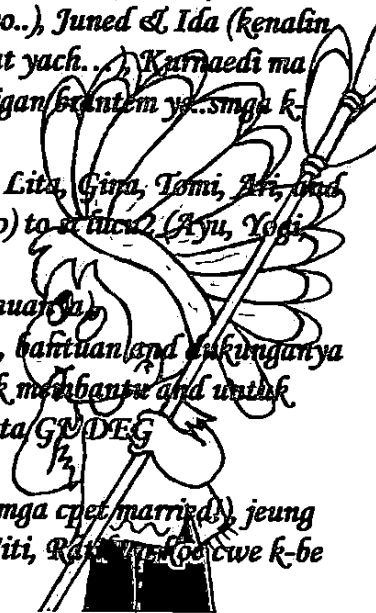 o..), Juned & Ida (kenalin
at yach...), Kurnaedi ma
igan brantem ya..smga k-
Lita, Gina, Tomi, Ari, and
o) to si lucu2 (Ayu, Yogi,
nuanya),
, bantuan and dukunganya
k membantu and untuk
ta GUDEG
mga cpet married!), jeung
iti, cwe k-be